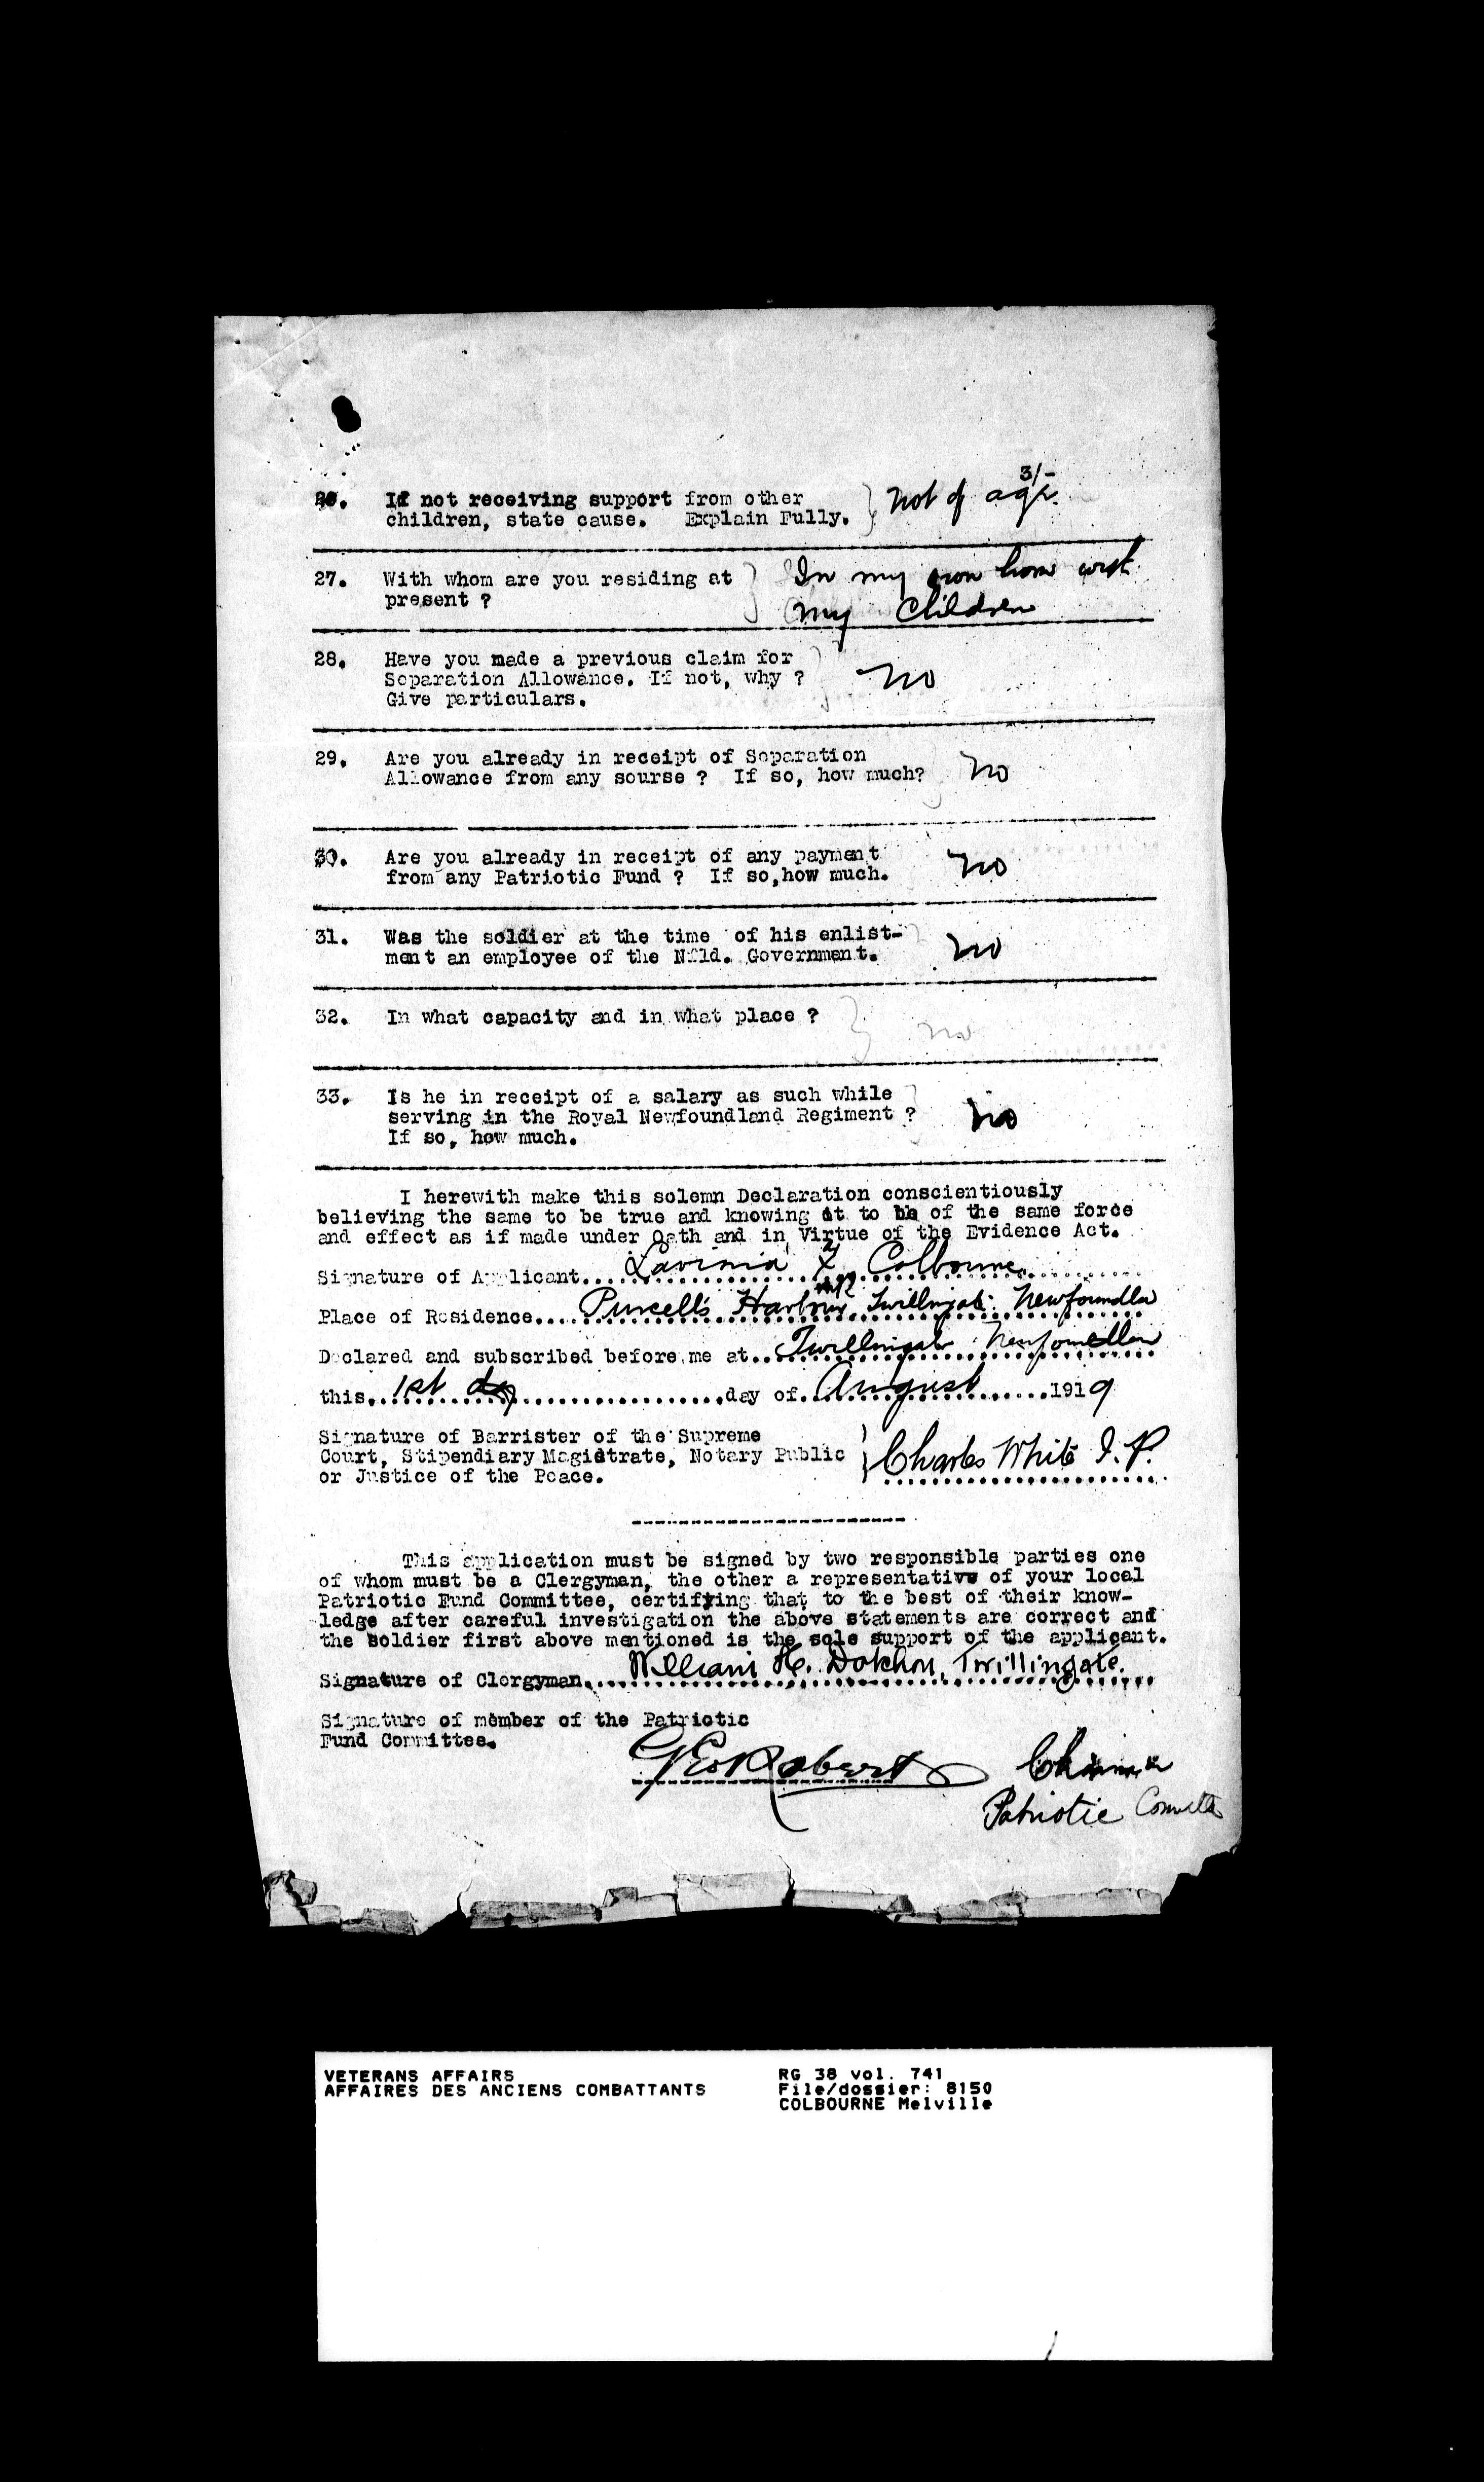 3/-
26. If not receiving support from other
children, state cause. Explain Fully. } Not of age.
27. With whom are you residing at
present ? } In my own home with
my children
28. Have you made a previous claim for
Separation Allowance. If not, why ?
Give particulars. } No
29. Are you already in receipt of Separation
Allowance from any sourse ? If so, how much? No
30. Are you already in receipt of any payment
from any Patriotic Fund ? If so,how much. No
31. Was the soldier at the time of his enlist-
ment an employee of the Nfld. Government. No
32. In what capacity and in what place ? } no
33. Is he in receipt of a salary as such while
serving in the Royal Newfoundland Regiment ?
If so, how much. } No
I herewith make this solemn Declaration conscientiously
believing the same to be true and knowing it to be of the same force
and effect as if made under Oath and in Virtue of the Evidence Act.
Signature of Applicant.... Lavinia X Colbourne
Place of Residence.... Purcell's Harbour, Twillingate Newfoundlan
Declared and subscribed before me at.. Twillingate Newfoundlan
this. 1st day ....day of. August ....1919
Signature of Barrister of the Supreme
Court, Stipendiary Magistrate, Notary Public
or Justice of the Peace. } Charles White J.P.
This application must be signed by two responsible parties one
of whom must be a Clergyman, the other a representative of your local
Patriotic Fund Committee, certifying that to the best of their know-
ledge after careful investigation the above statements are correct and
the soldier first above mentioned is the sole support of the applicant.
Signature of Clergyman.... William H. Dotchon, Twillingate.
Signature of member of the Patriotic
Fund Committee.
Geo Robert Chairman
Patriotic Committe
VETERANS AFFAIRS
AFFAIRES DES ANCIENS COMBATTANTS
RG 38 vol. 741
File/dossier: 8150
COLBOURNE Melville